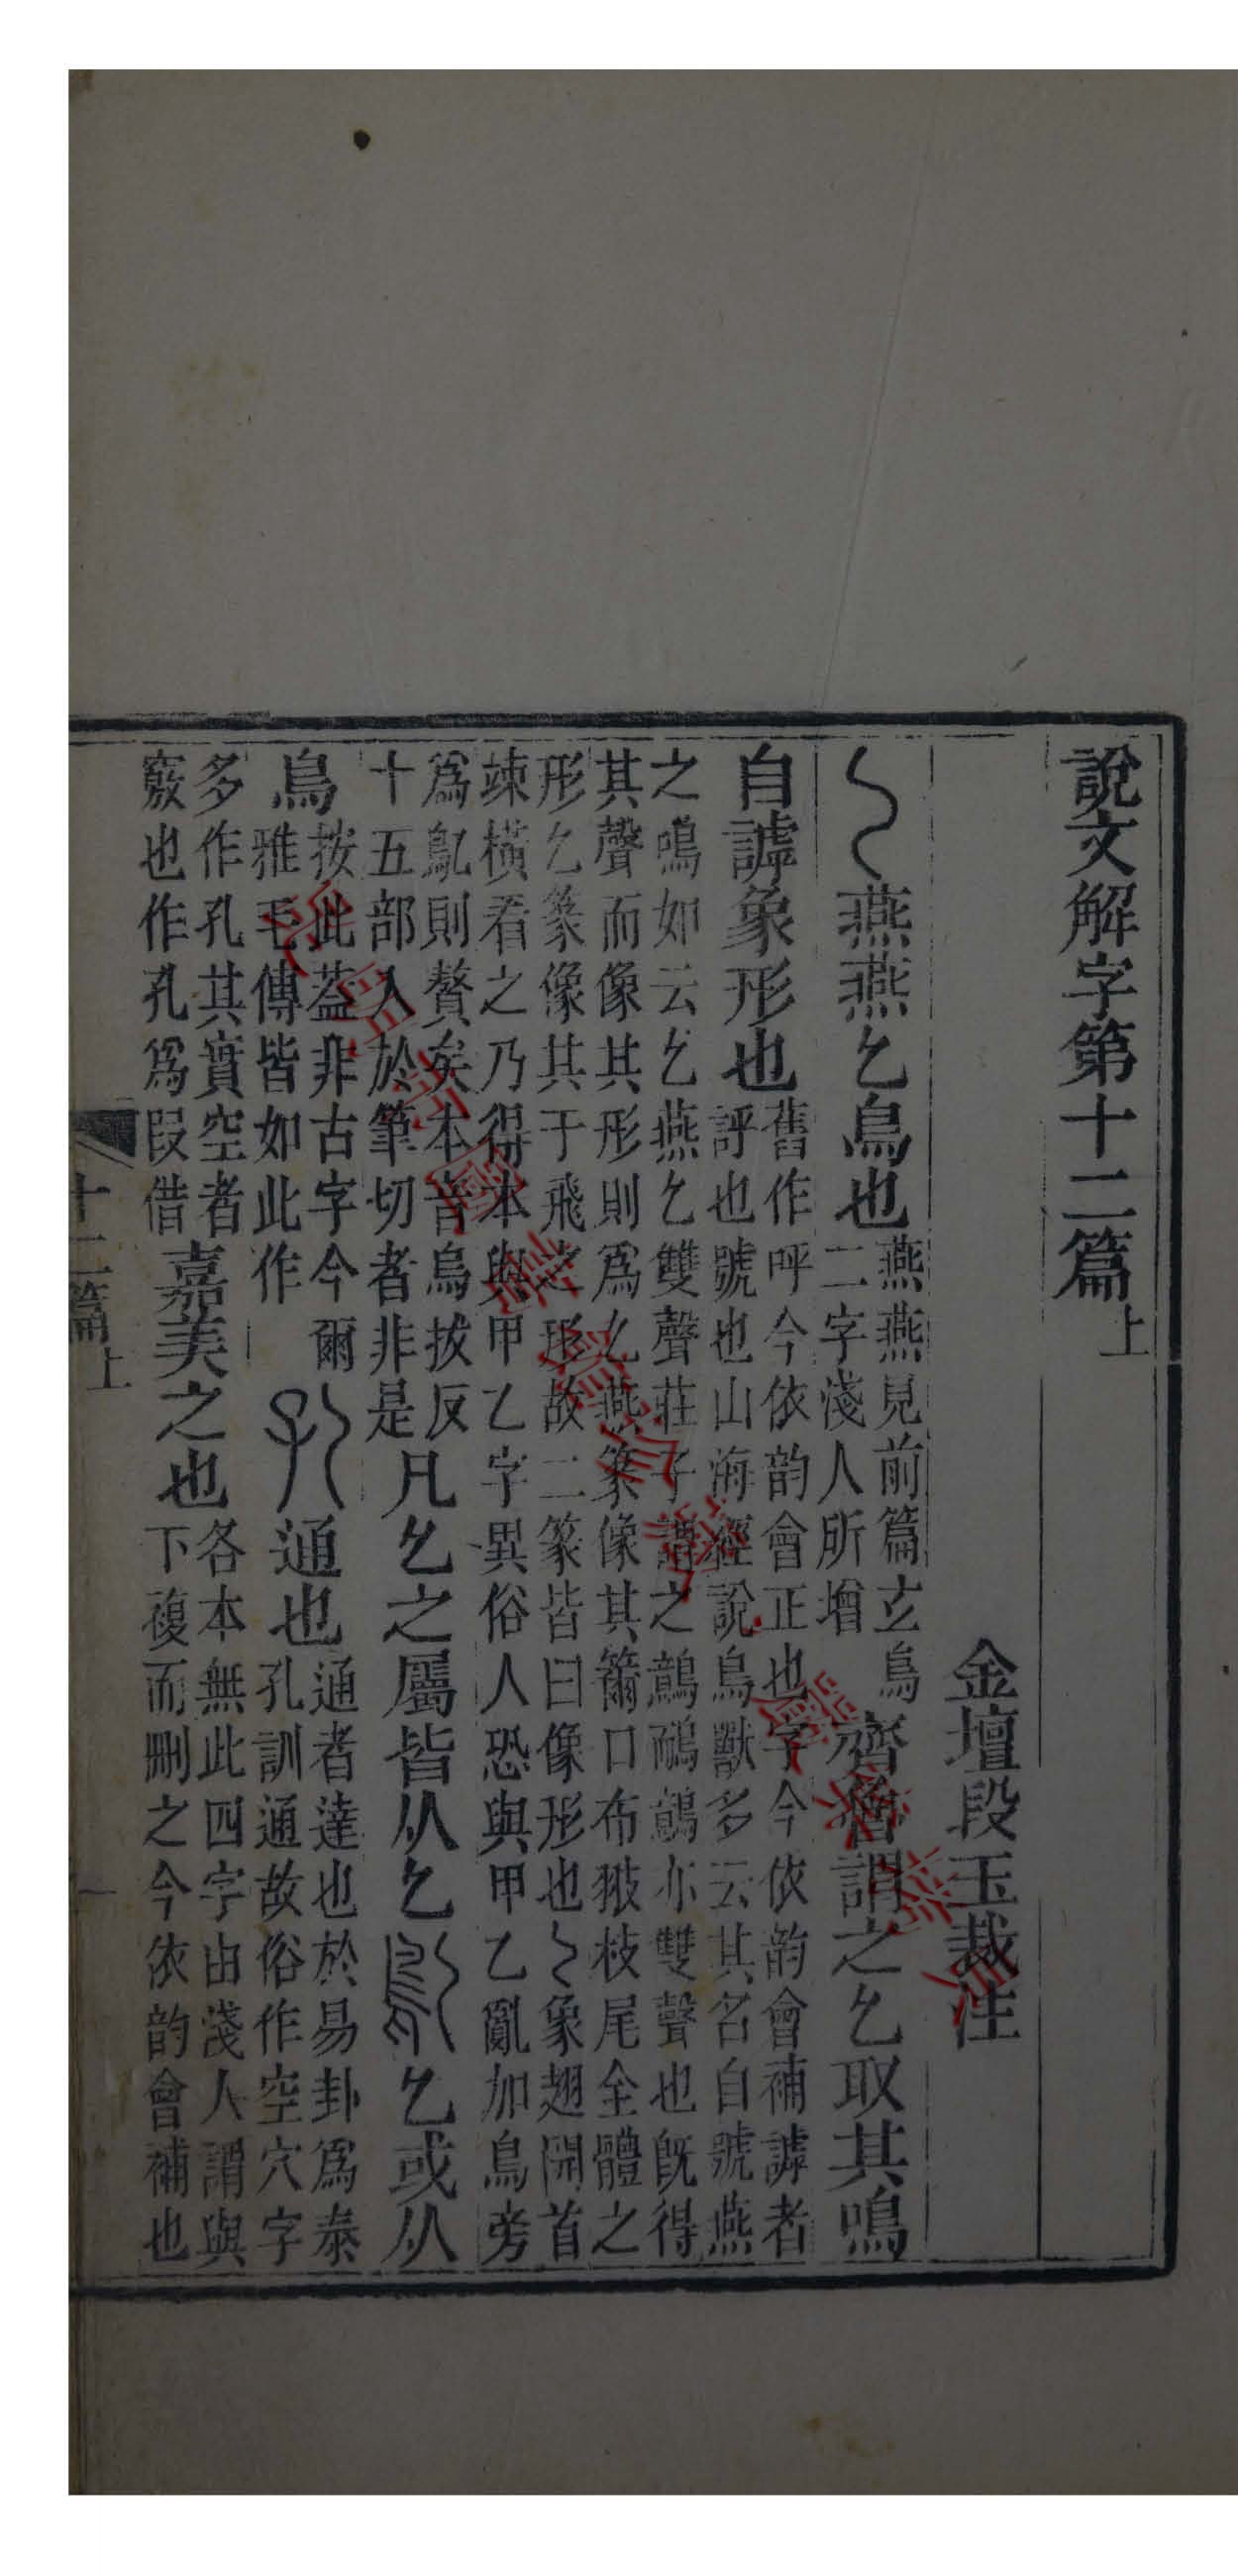 說文解字第十二篇上
金壇段玉裁注
燕燕乞鳥也燕燕見前篇玄鳥二字淺人所增齊魯謂之乞取其鳴
自謼象形也舊作呼今依韵會正也字今依韵會補謼者評也號也山海經說鳥獸多云其名自號燕
之鳴如云乞燕乞雙聲莊子謂之鷾鴯鷾亦雙聲也旣得其聲而像其形則爲乞燕篆像其籋口布翄枝尾全體之
形乞篆像其于飛之形故二篆皆曰像形也乙象翅開首竦橫看之乃得本與甲乙字異俗人恐與甲乙亂加鳥旁
爲鳦則贅矣本音烏拔反十五部入於筆切者非是凡乞之屬皆从乞鳦乞或从
鳥按此葢非古字今爾雅毛傳皆如此作孔通也通者達也於易卦爲泰孔訓通故俗作空穴字
多作孔其實空者竅也作孔爲叚借嘉美之也各本無此四字由淺人謂與下複而刪之今依韵會補也
十二篇上
一